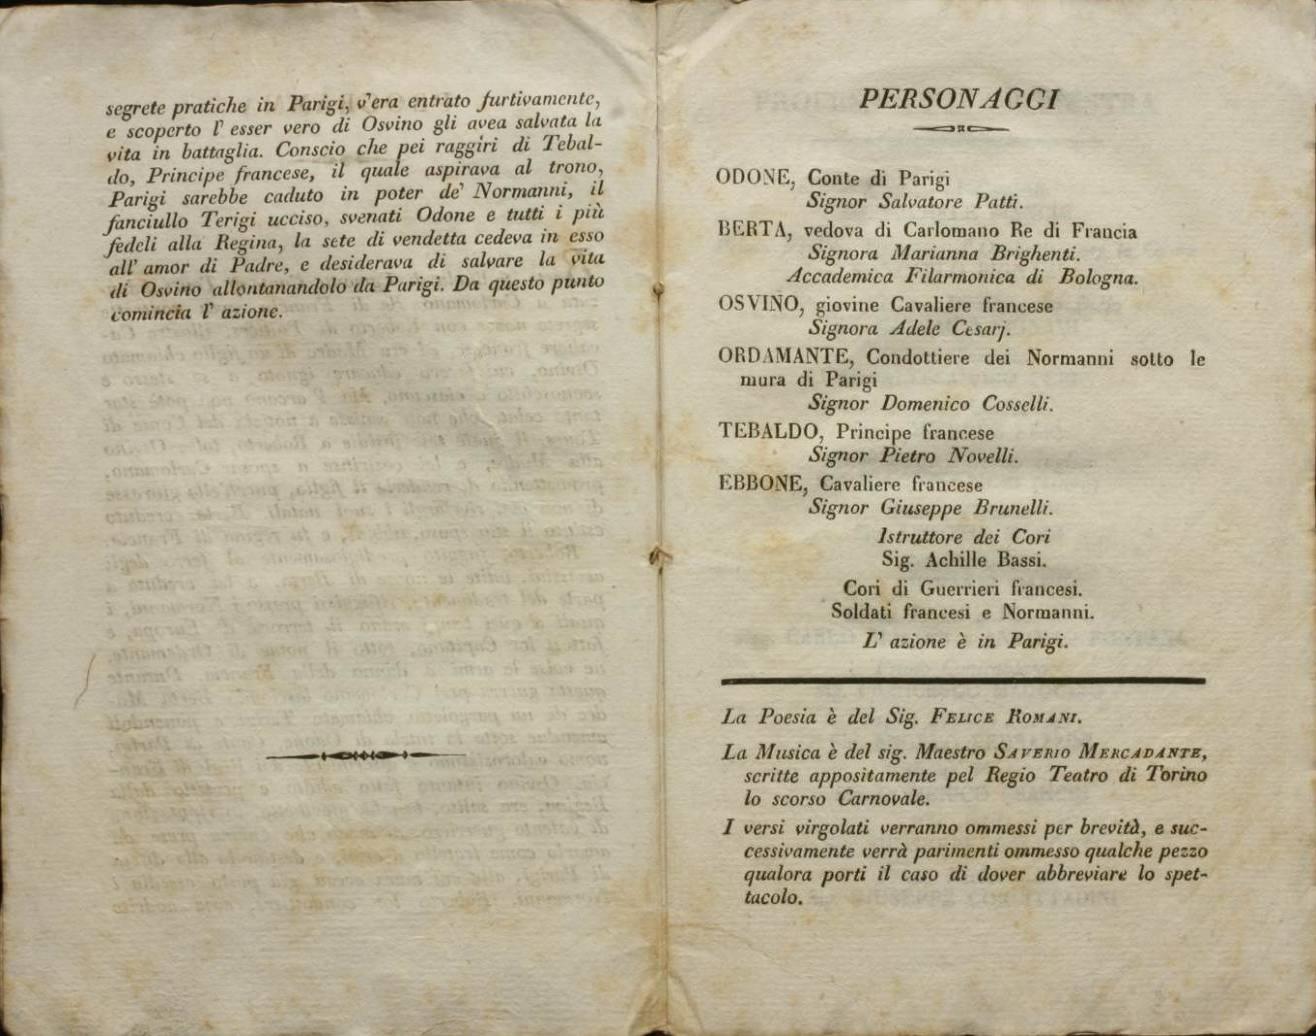 segrete pratiche in Parigi, v'era entrato furtivamente,
e scoperto l' esser vero di Osvino gli avea salvata la
vita in battaglia. Conscio che pei raggiri di Tebal-
do, Principe francese, il quale aspirava al trono,
Parigi sarebbe caduto in poter de' Normanni, il
fanciullo Terigi ucciso, svenati Odone e tutti i più
fedeli alla Regina, la sete di vendetta cedeva in esso
all' amor di Padre, e desiderava di salvare la vita
di Osvino allontanandolo da Parigi. Da questo punto
comincia l' azione.
PERSONAGGI
ODONE, Conte di Parigi
Signor Salvatore Patti.
BERTA, vedova di Carlomano Re di Francia
Signora Marianna Brighenti.
Accademica Filarmonica di Bologna.
OSVINO, giovine Cavaliere francese
Signora Adele Cesarj.
ORDAMANTE, Condottiere dei Normanni sotto le
mura di Parigi
Signor Domenico Cosselli.
TEBALDO, Principe francese
Signor Pietro Novelli.
EBBONE, Cavaliere francese
Signor Giuseppe Brunelli.
Istruttore dei Cori
Sig. Achille Bassi.
Cori di Guerrieri francesi.
Soldati francesi e Normanni.
L' azione è in Parigi.
La Poesia è del Sig. FELICE ROMANI.
La Musica è del sig. Maestro SAVERIO MERCADANTE,
scritte appositamente pel Regio Teatro di Torino
lo scorso Carnovale.
I versi virgolati verranno ommessi per brevità, e suc-
cessivamente verrà parimenti ommesso qualche pezzo
qualora porti il caso di dover abbreviare lo spet-
tacolo.